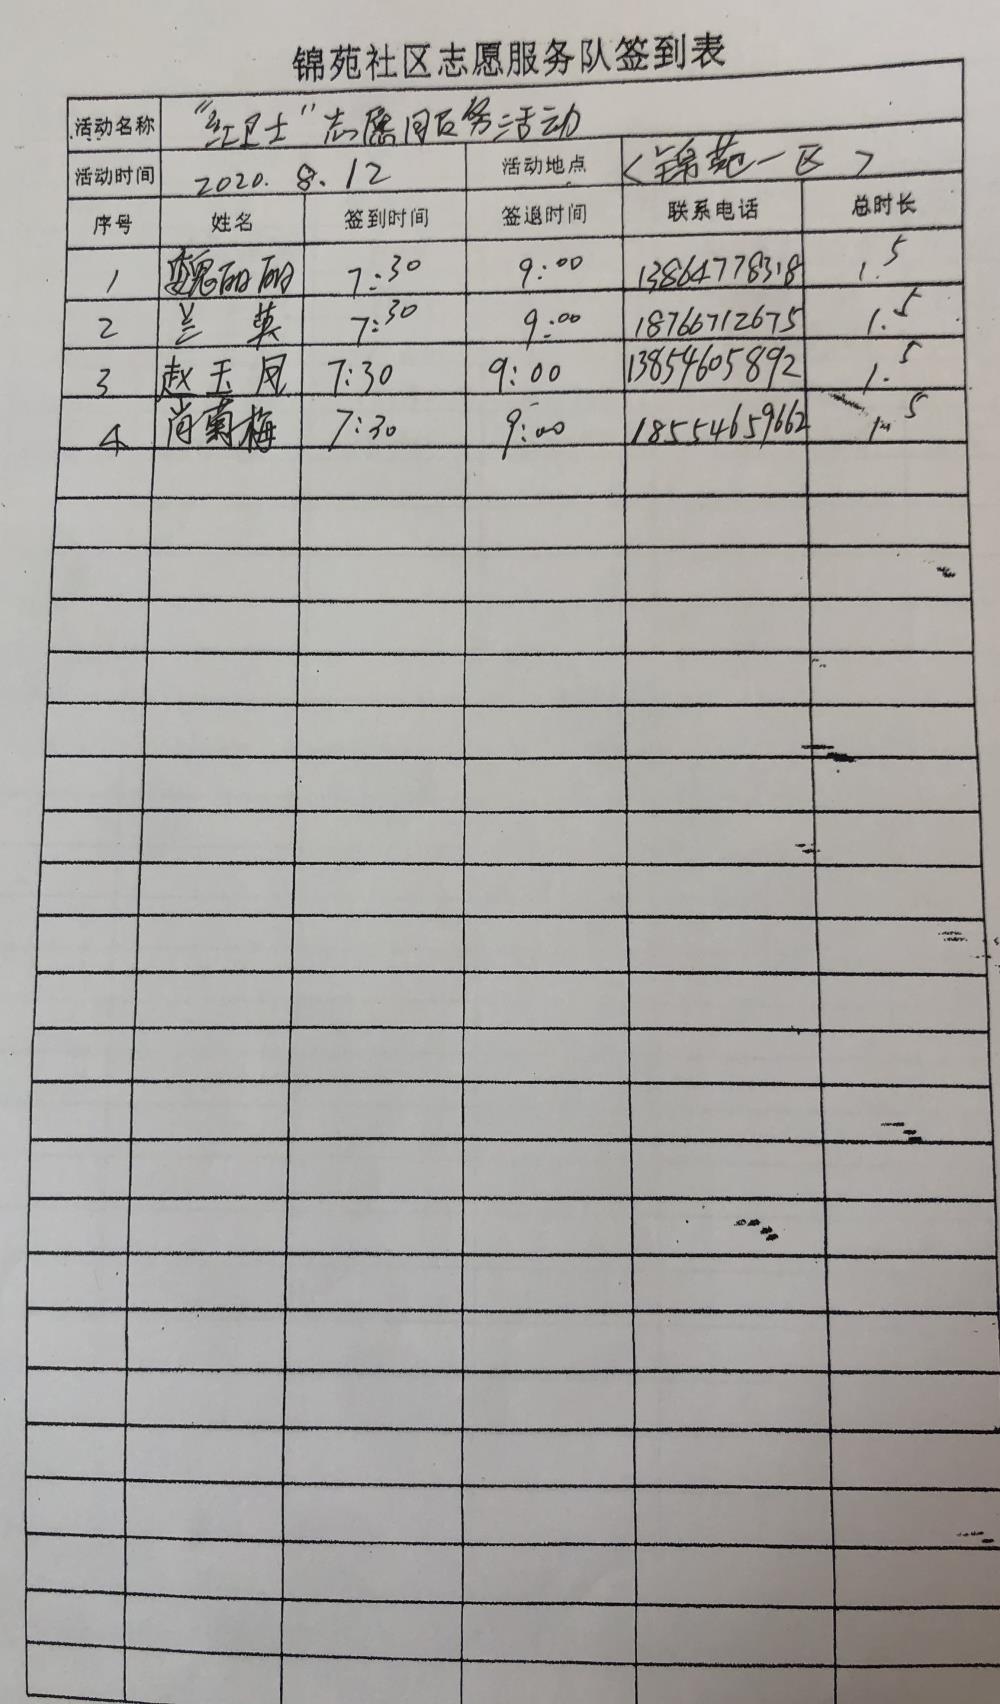 锦苑社区志愿服务队签到表
活动名称 “红卫士”志愿服务活动
活动时间 2020.8.12 活动地点 <锦苑一区>
序号 姓名 签到时间 签退时间 联系电话 总时长
1 魏丽丽 7:30 9:00 13864778318 1.5
2 兰英 7:30 9:00 18766712675 1.5
3 赵玉凤 7:30 9:00 13854605892 1.5
4 尚菊梅 7:30 9:00 18554659662 1.5